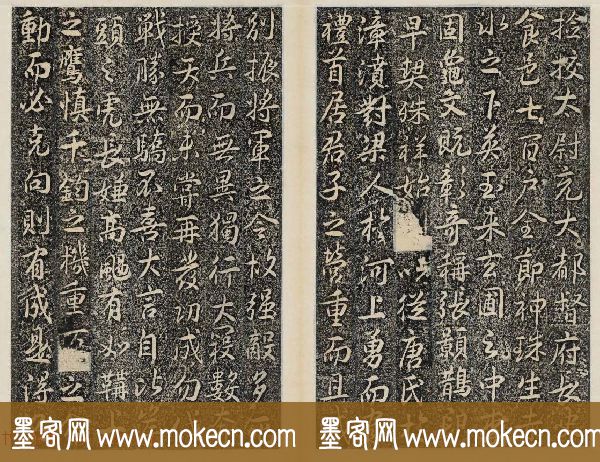 捡校太尉充大都督府長
食邑七百户全節神珠生
水之下英玉来玄圃之中
固龜文既彰奇稱張顥鵲
早契殊祥始以從唐民於
漳濆對梁人於河上勇而
禮首居君子之營重而且
別振將軍之令故强敵多
將兵而無異獨行大寇數
授天而未嘗再發功成勿伐
戰勝無驕不喜大言自比
頭之虎長嫌高颺有如鞲
之鷹慎千鈞之機重之
動而必克向則有成是得
墨客网 www.mokecn.com
墨客网 www.mokecn.com